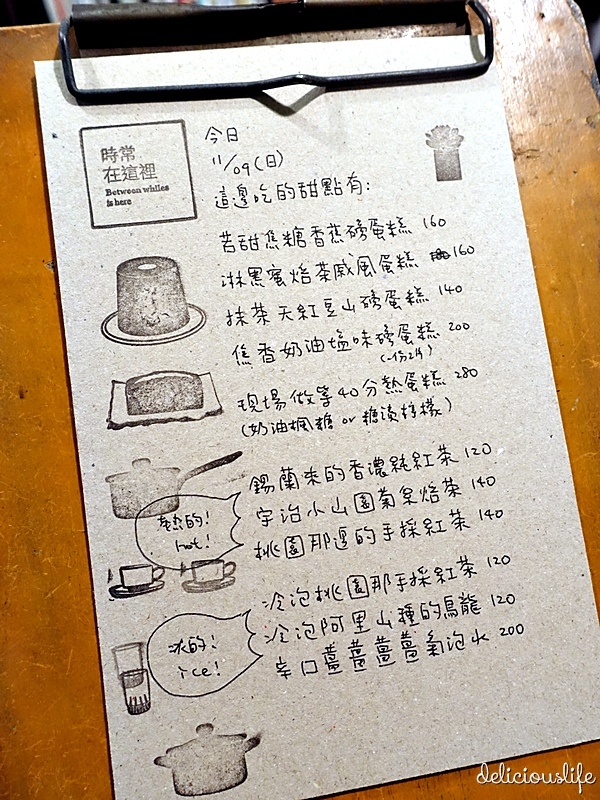 時常
在這裡
Between whiles
is here
今日
11/09(日)
這邊吃的甜點有:
苦甜焦糖香蕉磅蛋糕 160
淋黑蜜焙茶戚風蛋糕 160
抹茶天紅豆山磅蛋糕 140
焦香奶油塩味磅蛋糕 200
(一份2片)
現場做等40分熱蛋糕 280
(奶油楓糖 or 糖漬檸檬)
錫蘭來的香濃純紅茶 120
宇治小山園菊泉焙茶 140
桃園那邊的手採紅茶 140
熱的!
hot!
冷泡桃園那手採紅茶 120
冷泡阿里山種的烏龍 120
辛口薑薑薑薑氣泡水 200
冰的!
ice!
deliciouslife